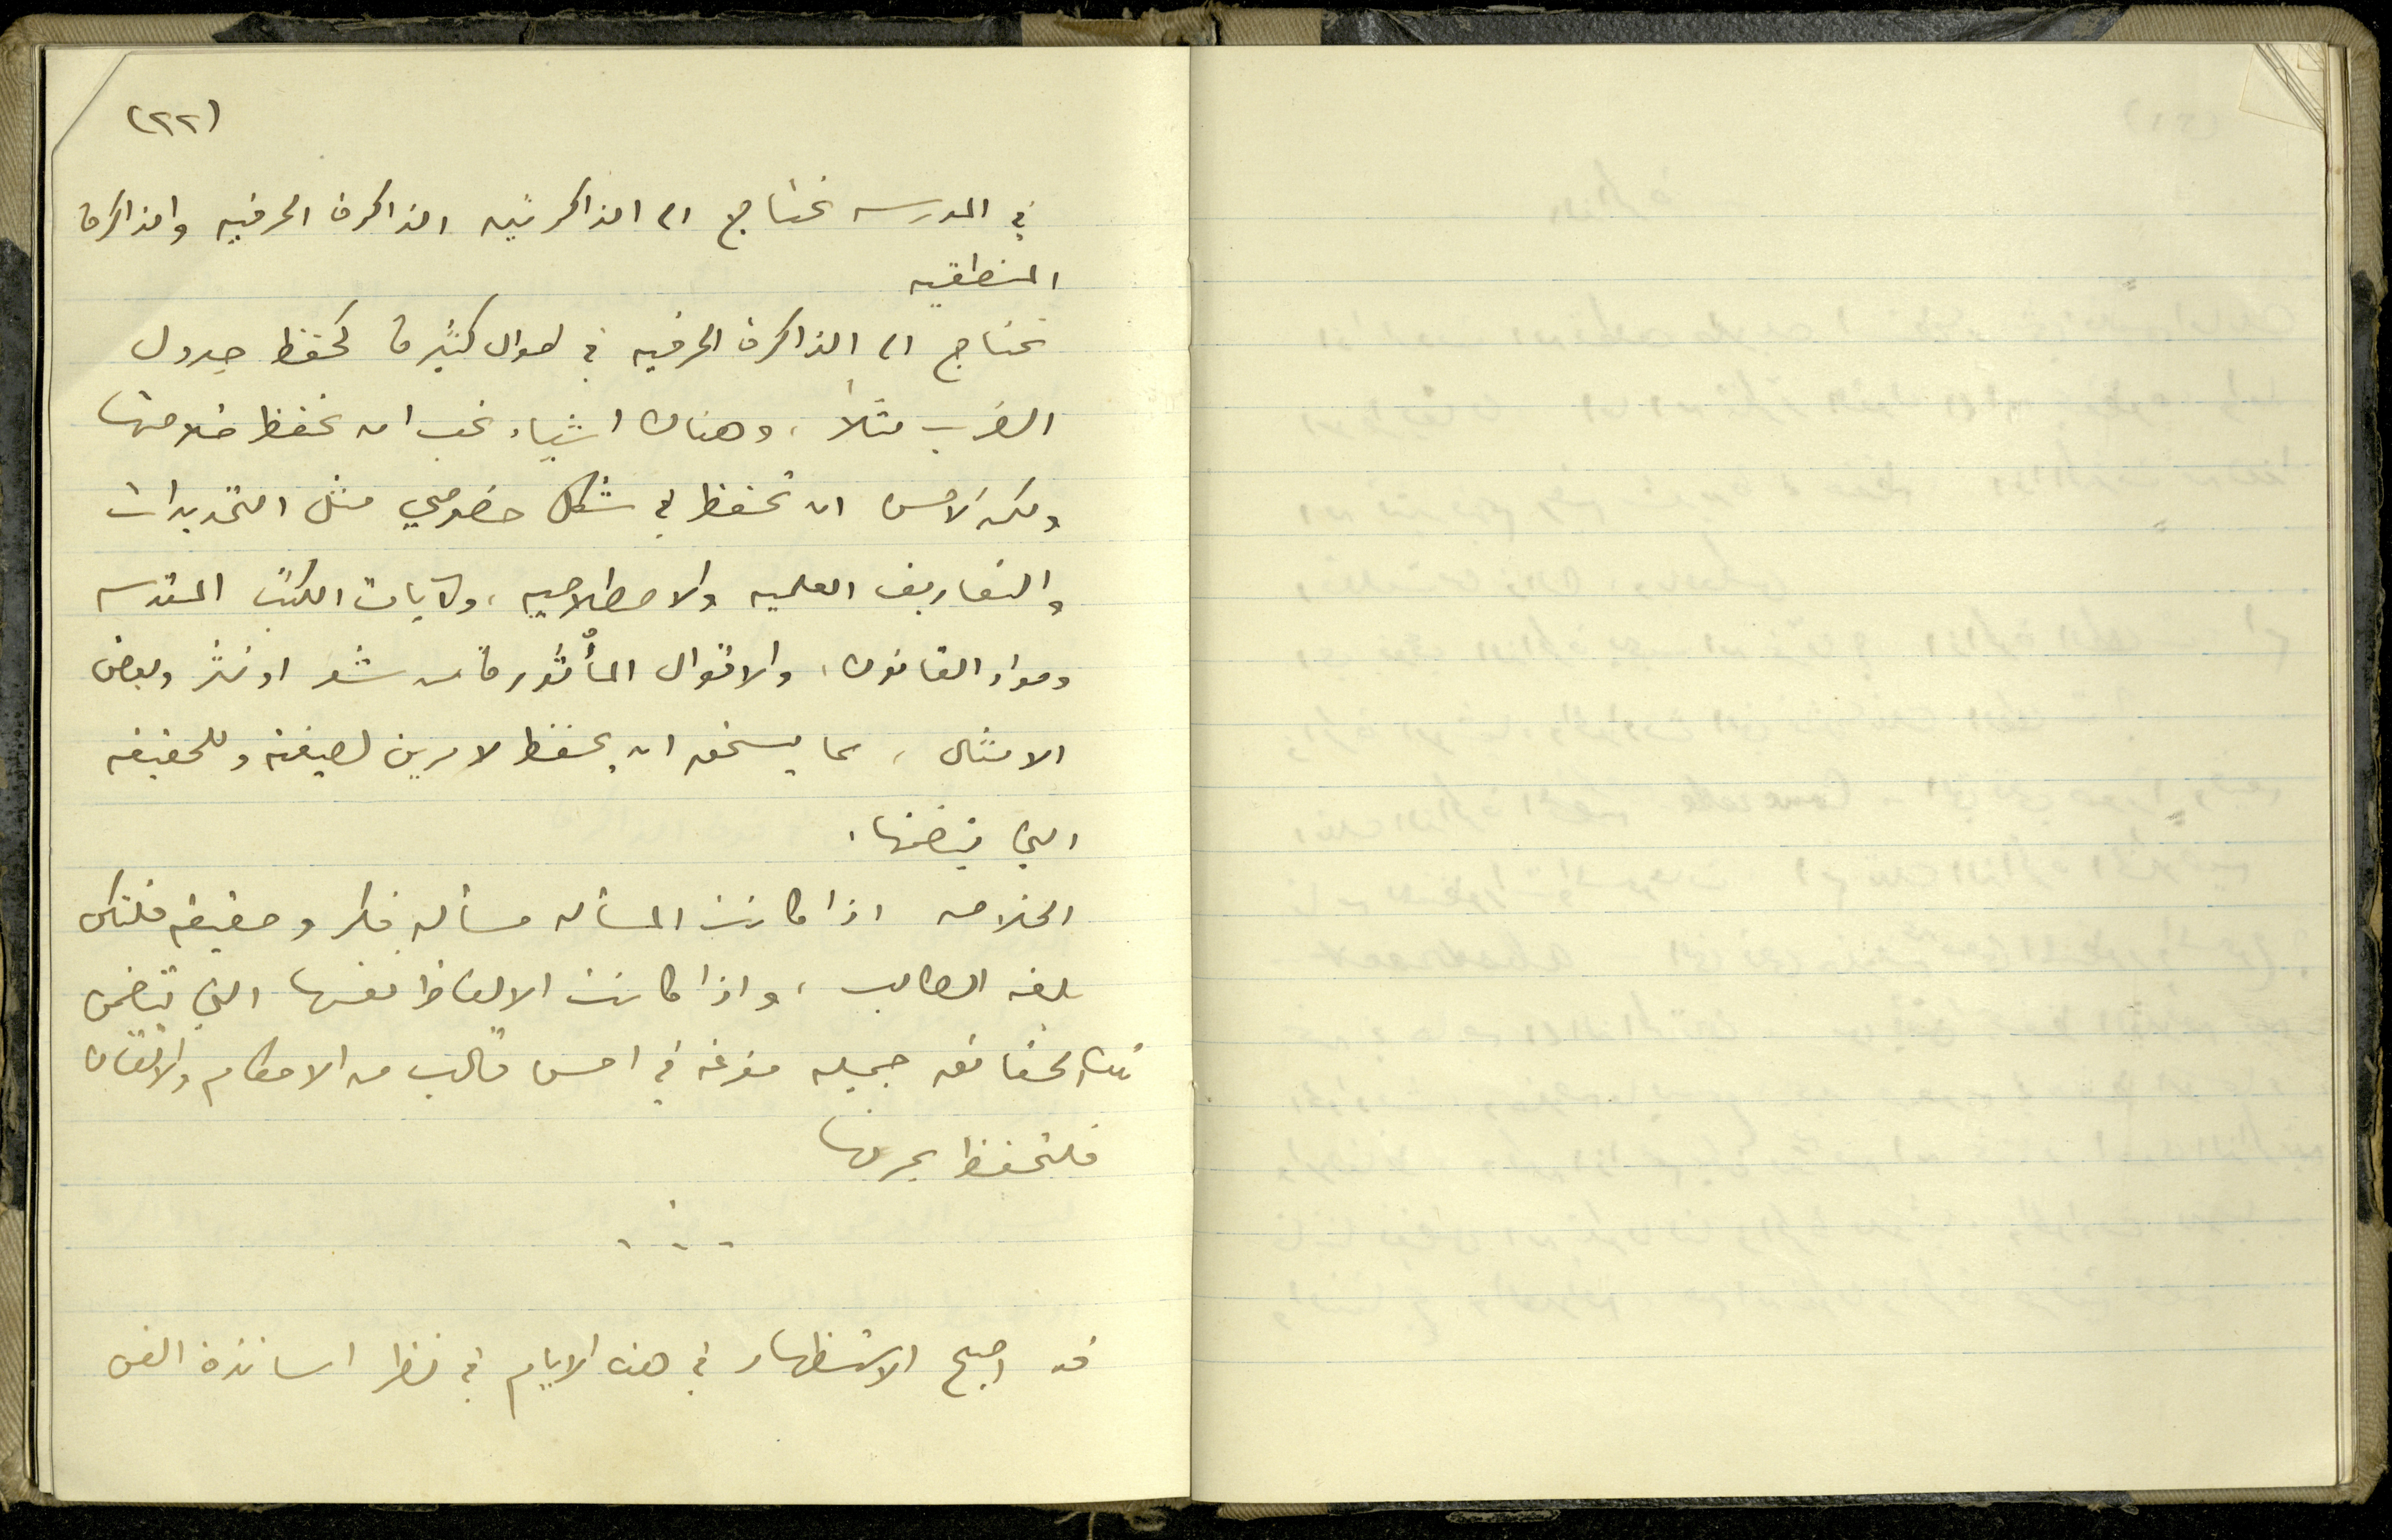 (٢٢)
في المدرسه نحتاج الى الذاكرتين الذاكرة الحرفيه والذاكرة
المنطقيه
نحتاج الى الذاكرة الحرفيه في احوال كثيرة كحفظ جدول
الضرب مثلاً، وهناك اشياء يجب ان تحفظ خلاصتها
ولكن الاحسن ان تحفظ في شكل خصوصي مثل التحديدات
والتعاريف العلميه والاصطلاحيه، وآيات الكتب المقدسه
ومواد القانون، والاقوال المأثورة من شعر او نثر وبعض
الامثال، مما يستحق ان يحفظ لامرين لصيغته وللحقيقه
التي يتضمنها.
الخلاصه اذا كانت المسأله مسأله فكر وحقيقه فلتكن
بلغه الطالب، واذا كانت الالفاظ نفسها التي تتضمن
تلك الحقائق جميله مفرغه في احسن قالب من الاحكام والاتقان
فلتحفظ بحرفها
قد اصبح الاستظهار في هذه الايام في نظر اساتذة الفن